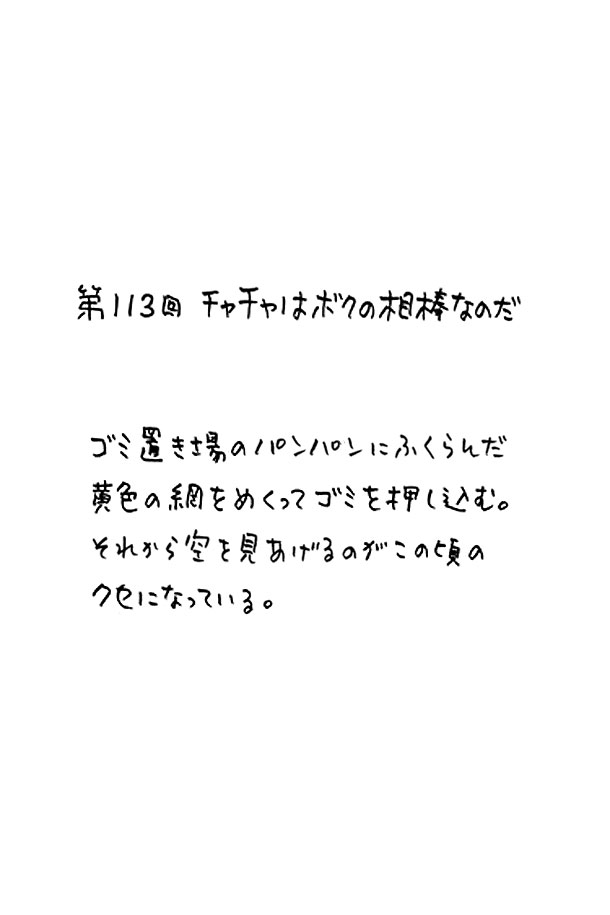 第113回 チャチャはボクの相棒なのだ
ゴミ置き場のパンパンにふくらんだ
黄色の網をめくってゴミを押し込む。
それから空を見あげるのがこの頃の
クセになっている。